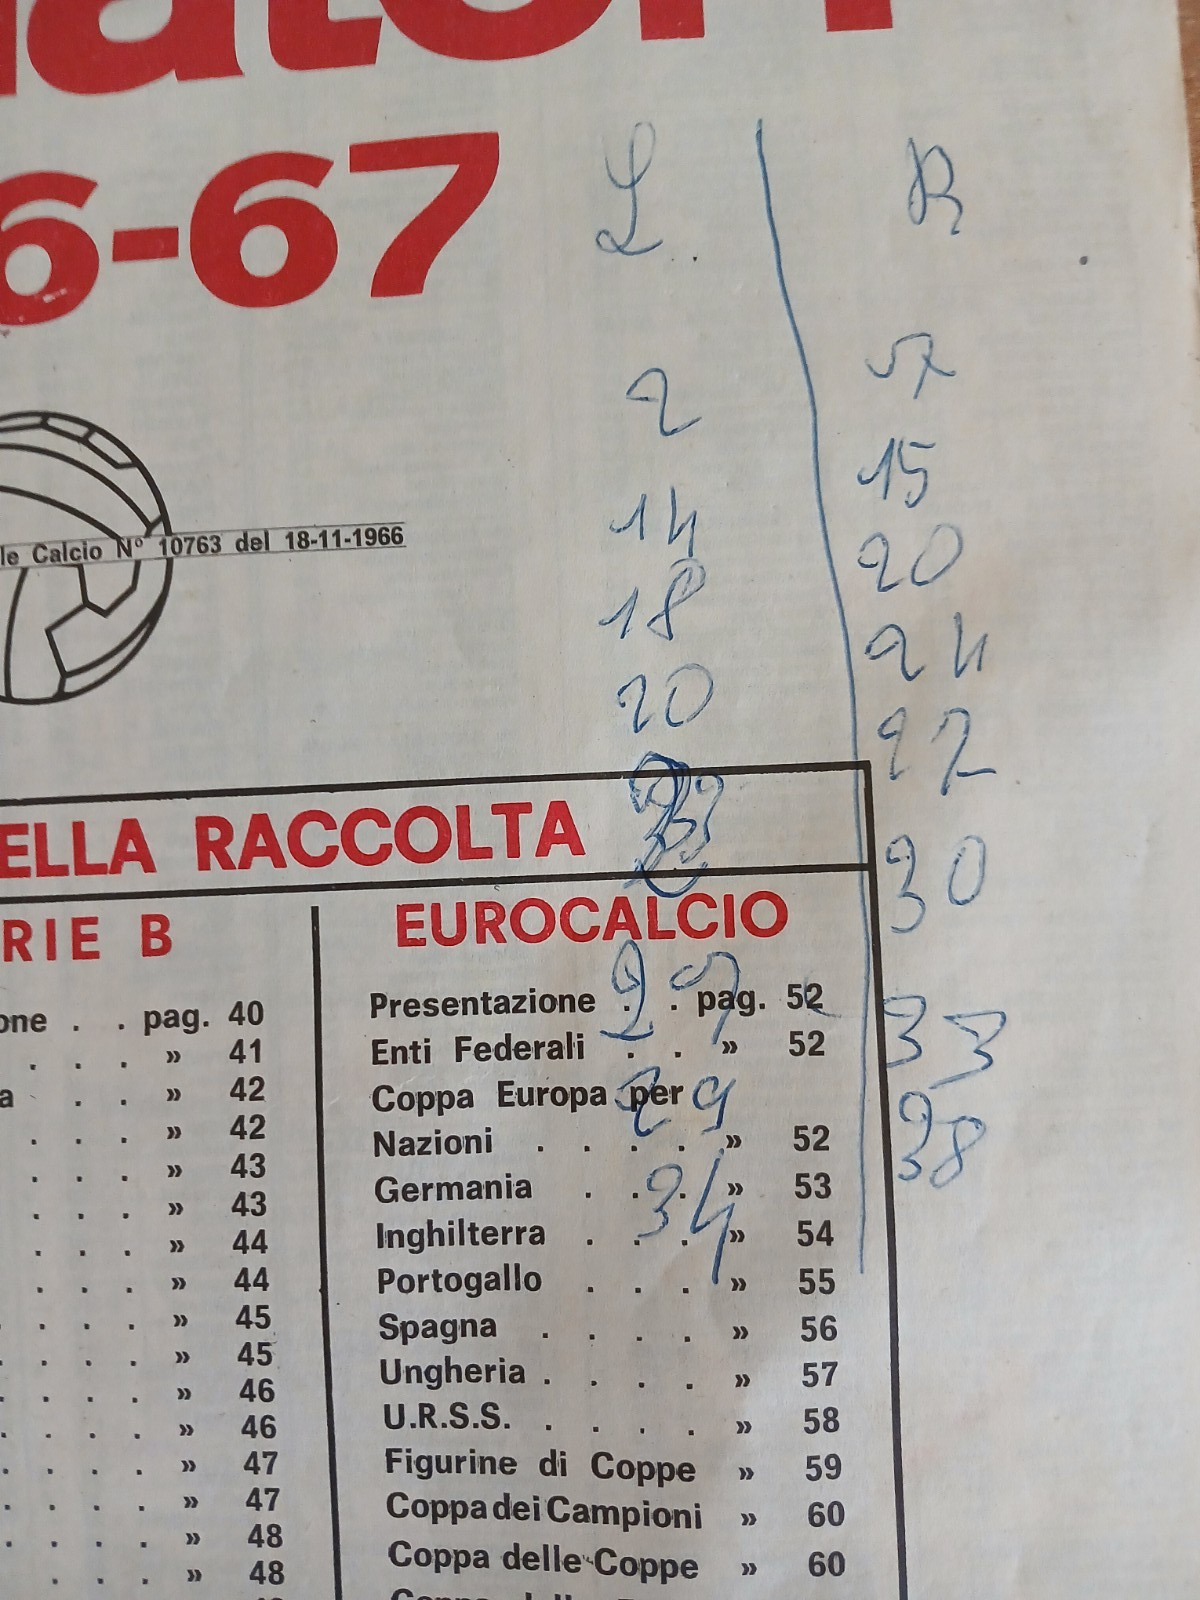 6-67
L. R
2 57
14 15
18 20
20 24
27
30
33
29 38
34
le Calcio N° 10763 del 18-11-1966
ELLA RACCOLTA
RIE B
one . . pag. 40
. . . » 41
a . . » 42
. . . » 42
. . . » 43
. . . » 43
. . . » 44
. . . » 44
. . . . » 45
. . . . » 45
. . . . » 46
. . . . » 46
. . . . » 47
. . . . » 47
. . . . » 48
. . . » 48
EUROCALCIO
Presentazione . . pag. 52
Enti Federali . . » 52
Coppa Europa per
Nazioni . . . . » 52
Germania . . . » 53
Inghilterra . . . » 54
Portogallo . . . » 55
Spagna . . . . » 56
Ungheria . . . . » 57
U.R.S.S. . . . . » 58
Figurine di Coppe » 59
Coppa dei Campioni » 60
Coppa delle Coppe » 60